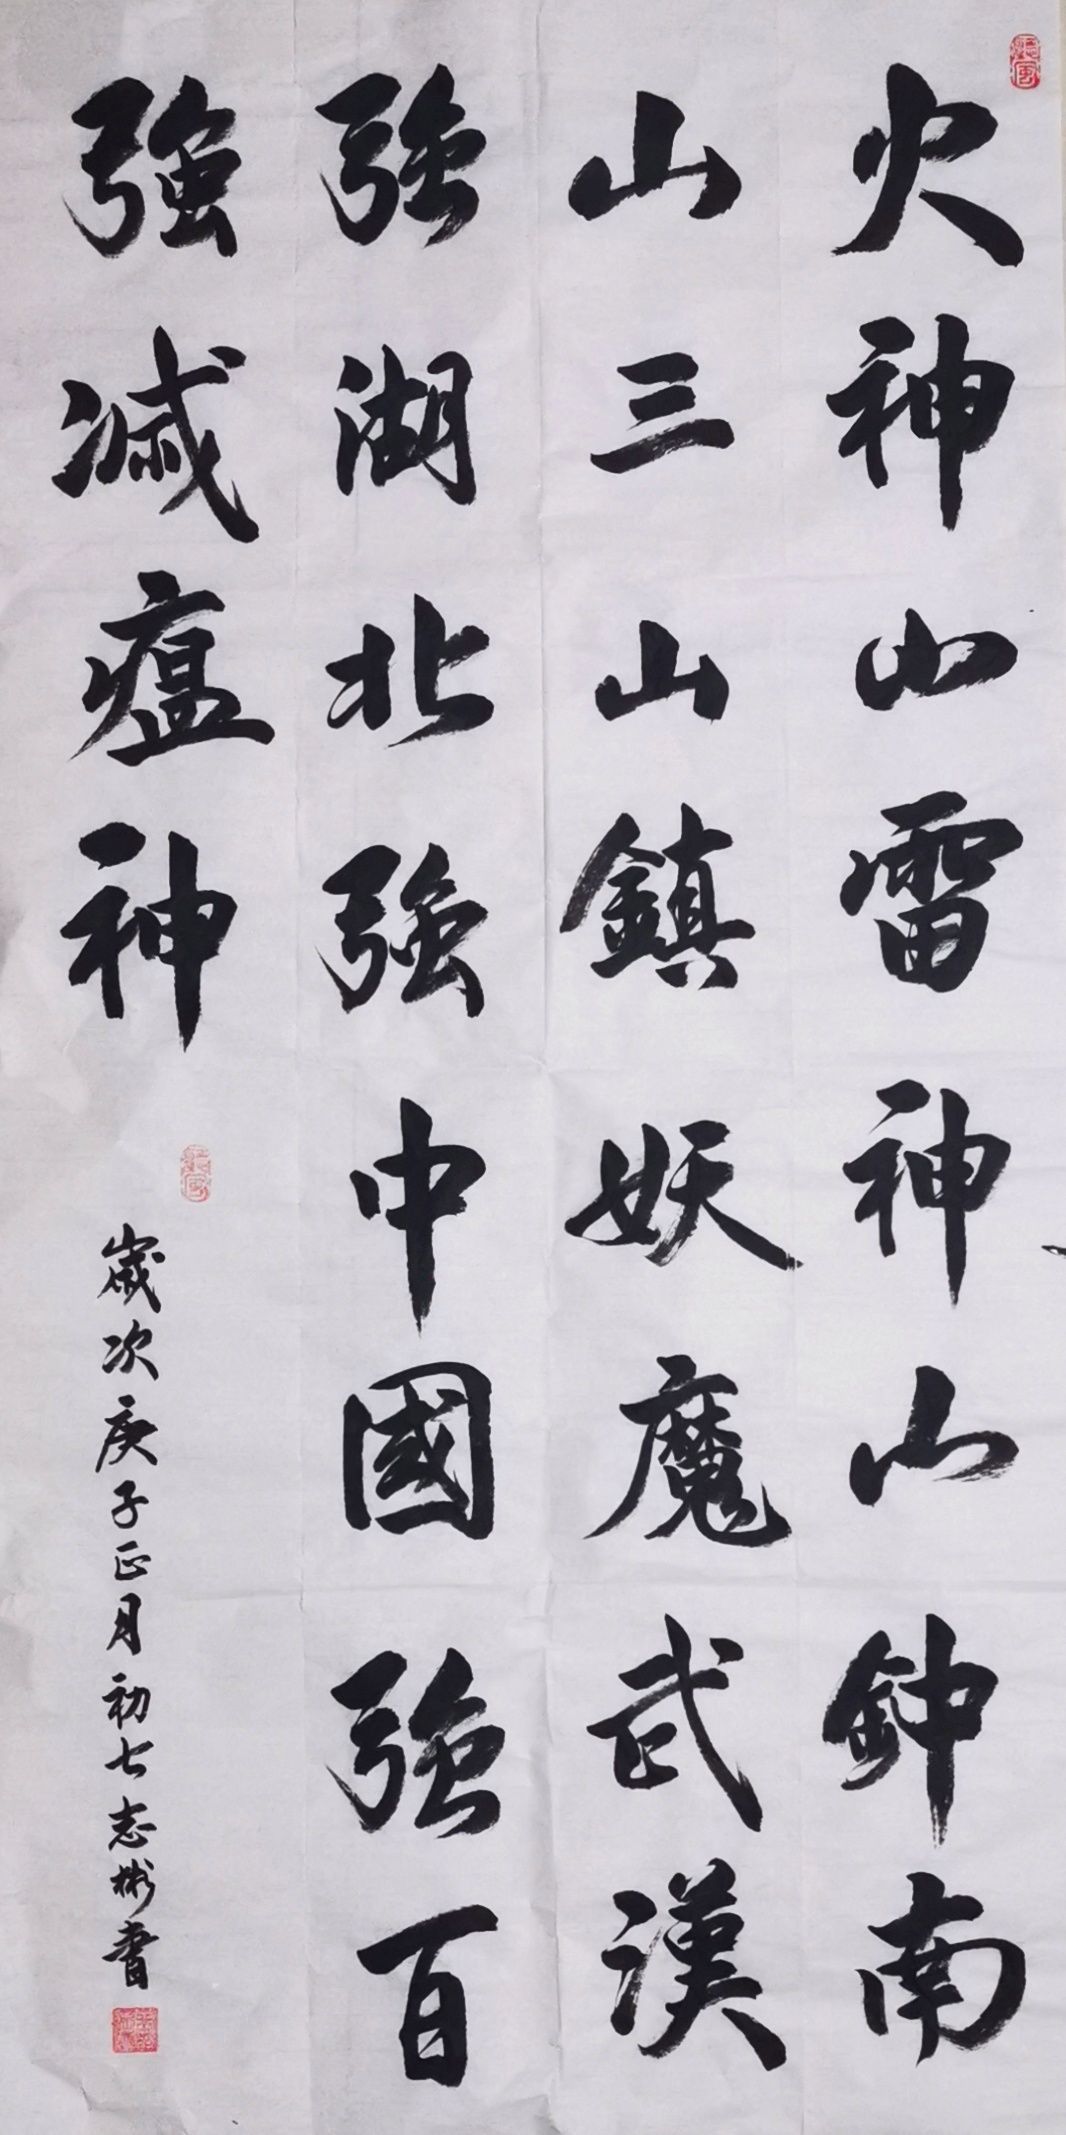 火神山雷神山鈡南
山三山鎮妖魔武漢
強湖北強中國強百
強滅瘟神
歲次庚子正月初七志彬書